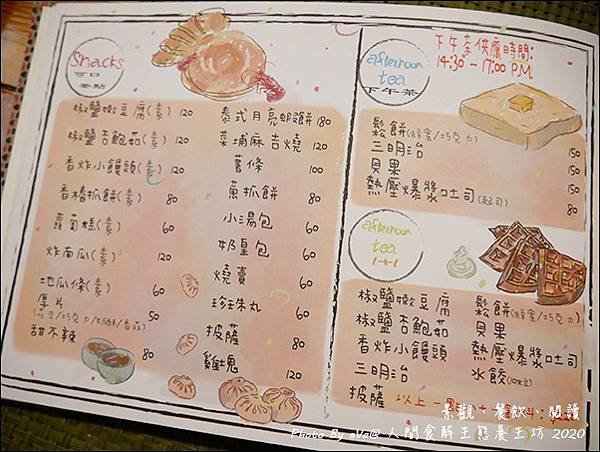 Snacks
可口
茶點
椒鹽嫩豆腐(素) 120
椒鹽杏鮑菇(素) 120
香炸小饅頭(素) 120
香椿抓餅(素) 80
蘿蔔糕(素) 60
炸南瓜(素) 120
地瓜條(素) 60
厚片
(花生/巧克力/奶酥/香蒜) 50
甜不辣 80
泰式月亮蝦餅 180
菜埔麻吉燒 120
薯條 100
蔥抓餅 80
小湯包 60
奶皇包 60
燒賣 60
珍珠丸 60
披薩 80
雞塊 120
afternoon
tea
下午茶
下午茶供應時間:
14:30 - 17:00 P.M.
鬆餅(蜂蜜/巧克力) 150
三明治 150
貝果 150
熱壓爆漿吐司(起司) 80
afternoon
tea
1+1
椒鹽嫩豆腐
椒鹽杏鮑菇
香炸小饅頭
三明治
披薩
鬆餅(蜂蜜/巧克力)
貝果
熱壓爆漿吐司
水餃(10顆)
以上一
景觀、餐飲、閱讀
Photo By eVa@ 人間食解生態養生坊 2020